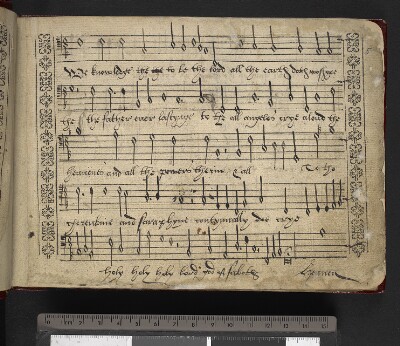 We knowledge the to be the lord all the earth doth
the the father ever lastynge to the all angeles crye aloud the
heavenes and all the powers therin all To the
cherubine and seraphyne contynually do crye
holy holy holy lord god of sabaoth